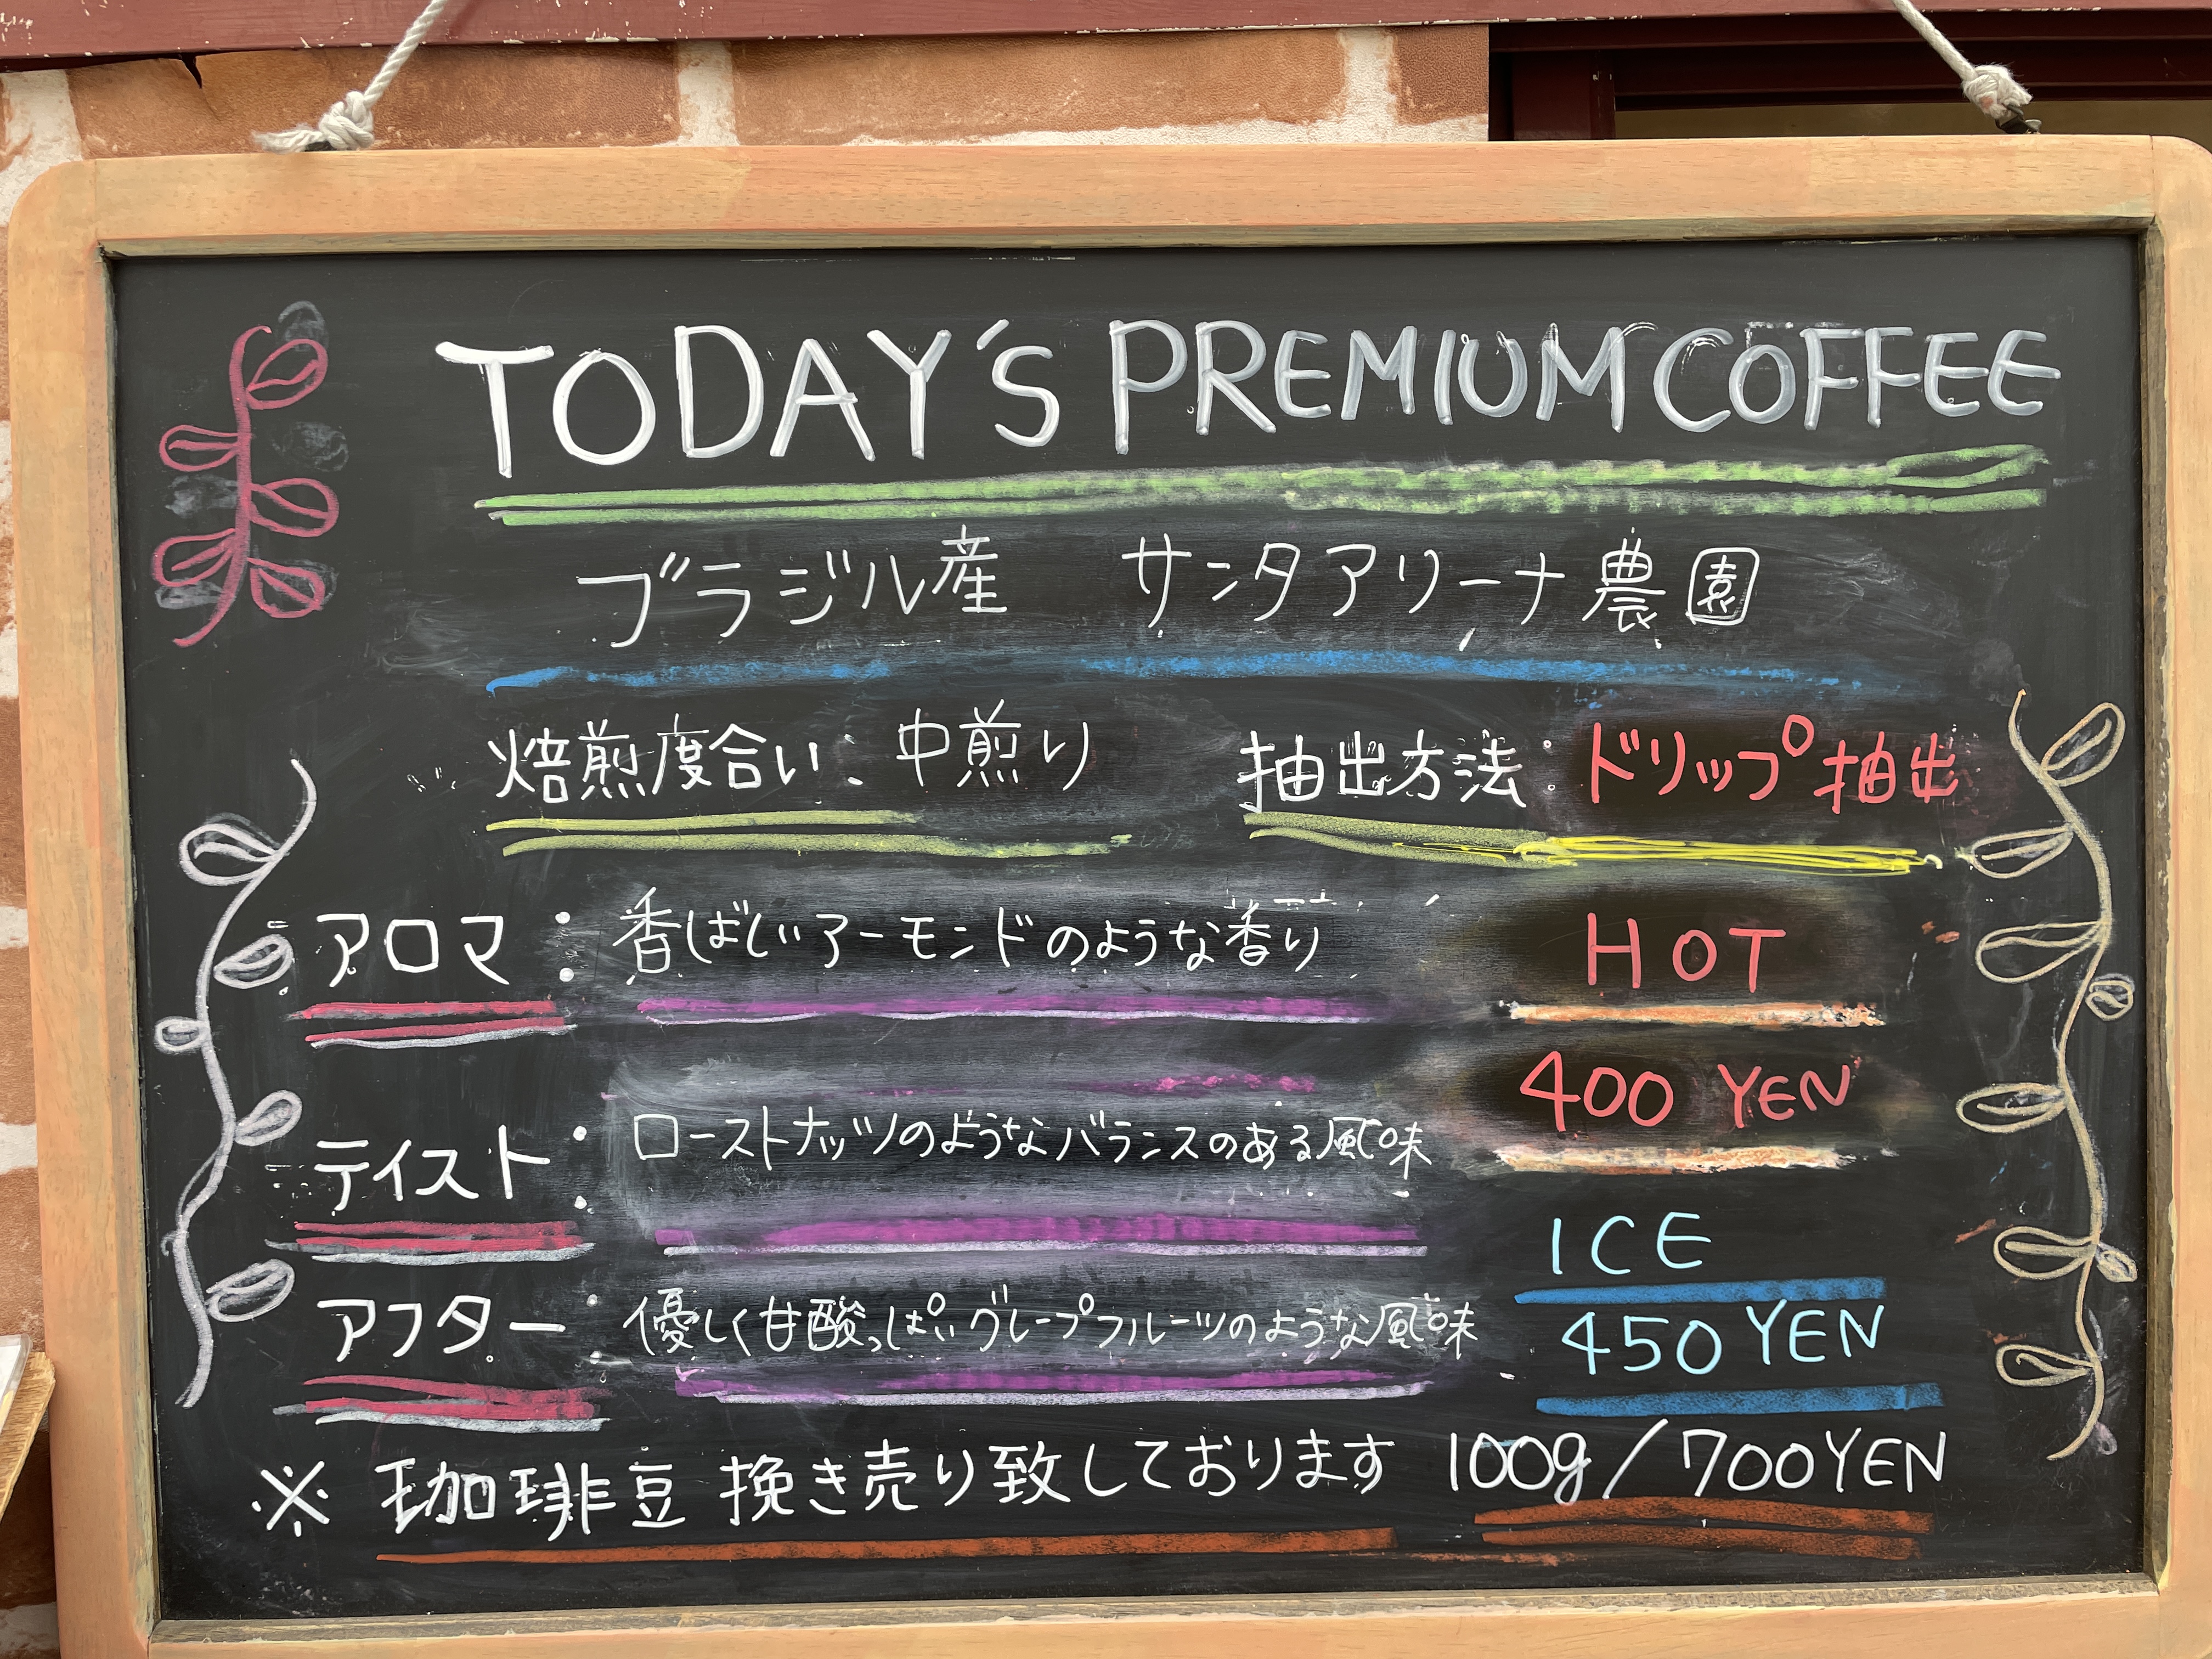 TODAY'S PREMIUM COFFEE
ブラジル産 サンタアリーナ農園
焙煎度合い: 中煎り 抽出方法:ドリップ抽出
アロマ: 香ばしいアーモンドのような香り
HOT
400 YEN
テイスト: ローストナッツのようなバランスのある風味
ICE
アフター: 優しく甘酸っぱいグレープフルーツのような風味
450 YEN
※ 珈琲豆 挽き売り致しております 100g/700YEN